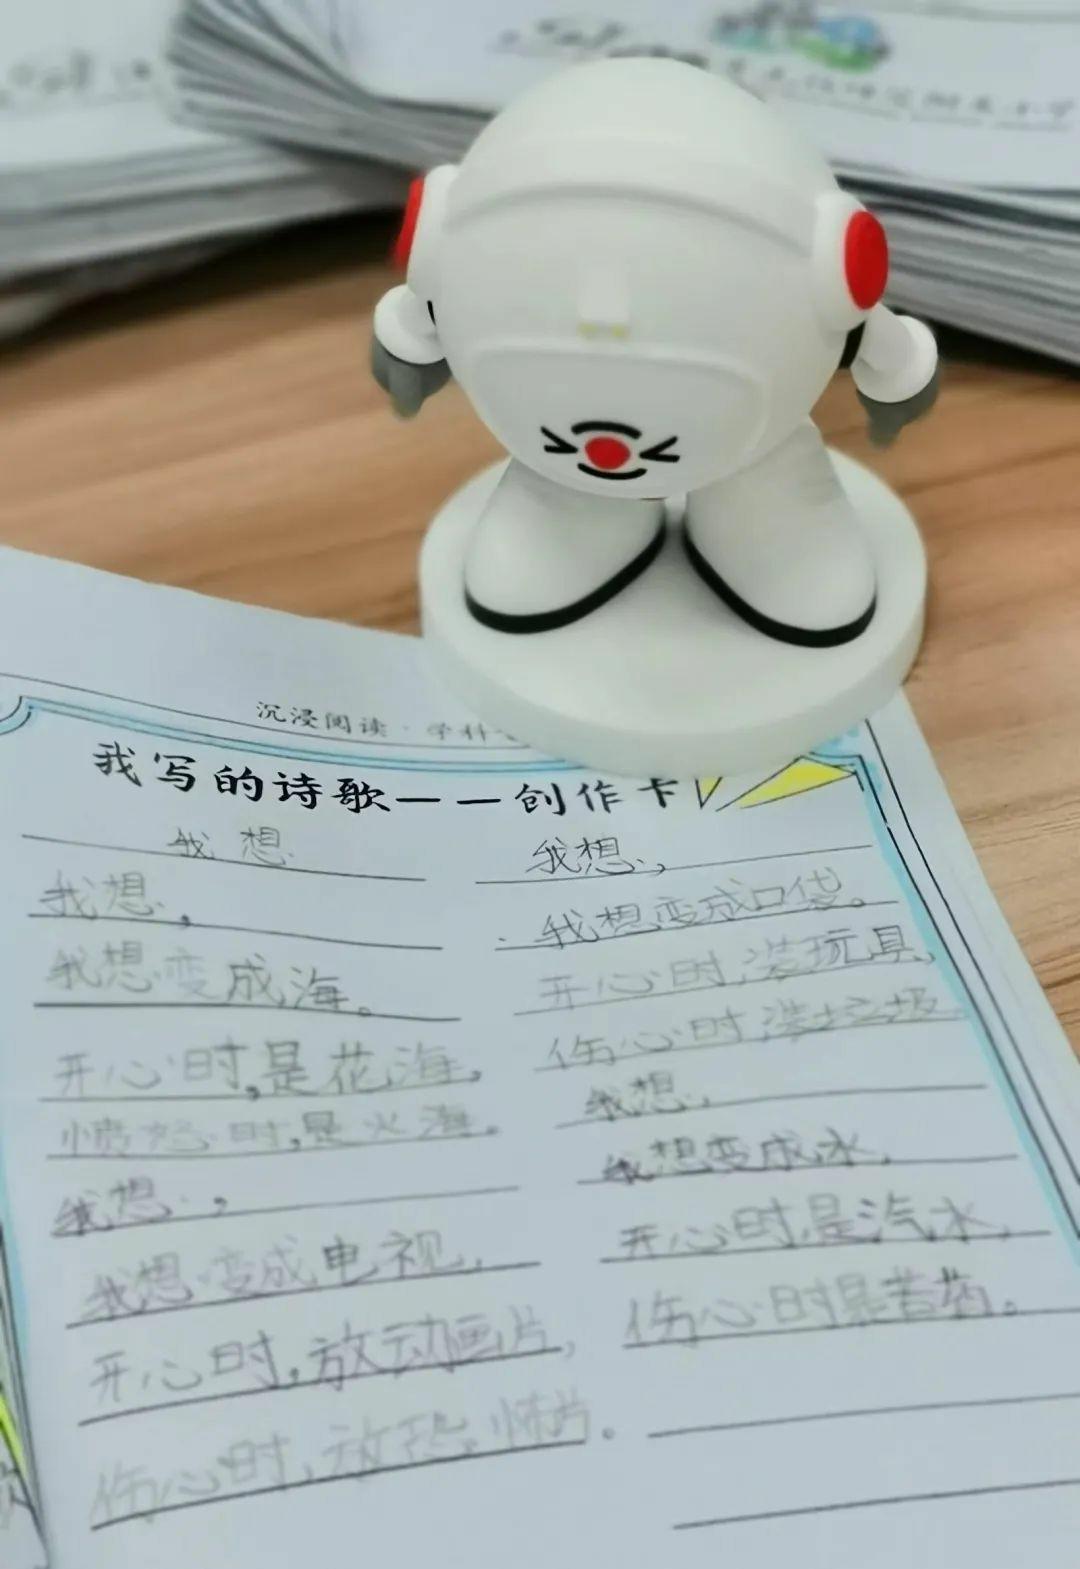 沉浸阅读·学科
我写的诗歌——创作卡
我想
我想,
我想变成海。
开心时,是花海,
愤怒时,是火海。
我想,
我想变成电视,
开心时,放动画片,
伤心时,放恐怖片。
我想,
我想变成口袋。
开心时,装玩具,
伤心时,装垃圾
我想,
我想变成水,
开心时,是汽水,
伤心时是苦药。